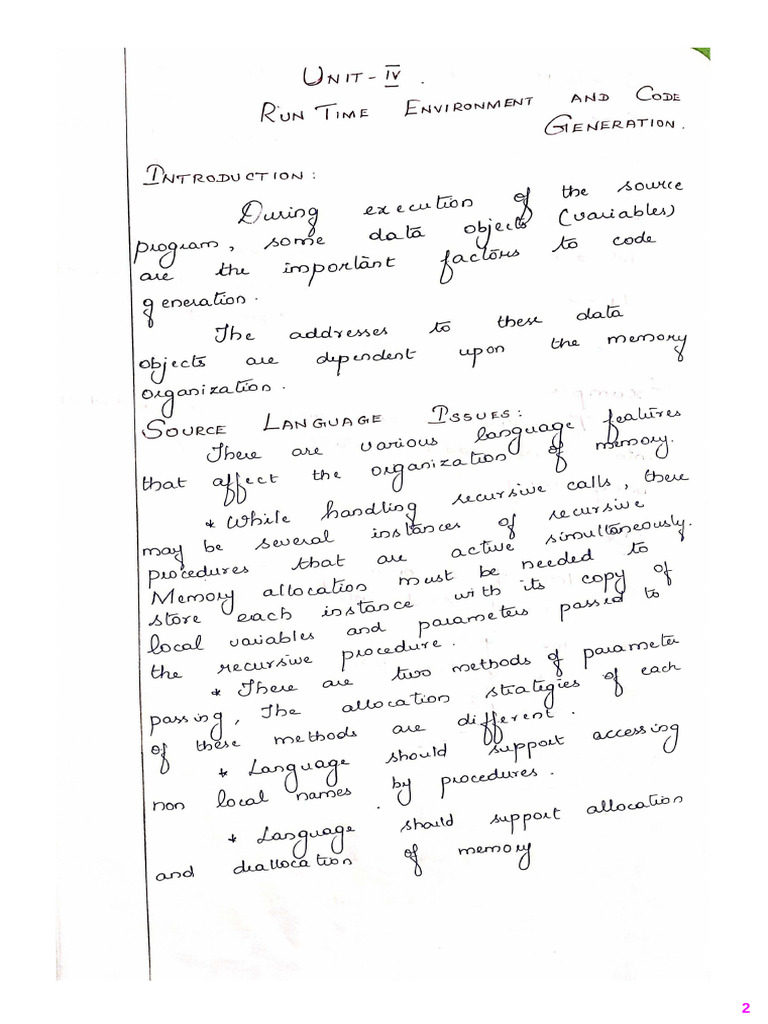 UNIT - IV.
RUN TIME ENVIRONMENT AND CODE
GENERATION.
INTRODUCTION:
During execution of the source
program, some data objects (variables)
are the important factors to code
generation.
The addresses to these data
objects are dependent upon the memory
organization.
SOURCE LANGUAGE ISSUES:
There are various language features
that affect the organization of memory.
* While handling recursive calls, there
may be several instances of recursive
procedures that are active simultaneously.
Memory allocation must be needed to
store each instance with its copy of
local variables and parameters passed to
the recursive procedure.
* There are two methods of parameter
passing, The allocation strategies of each
of these methods are different.
* Language should support accessing
non local names by procedures.
* Language should support allocation
and deallocation of memory
2